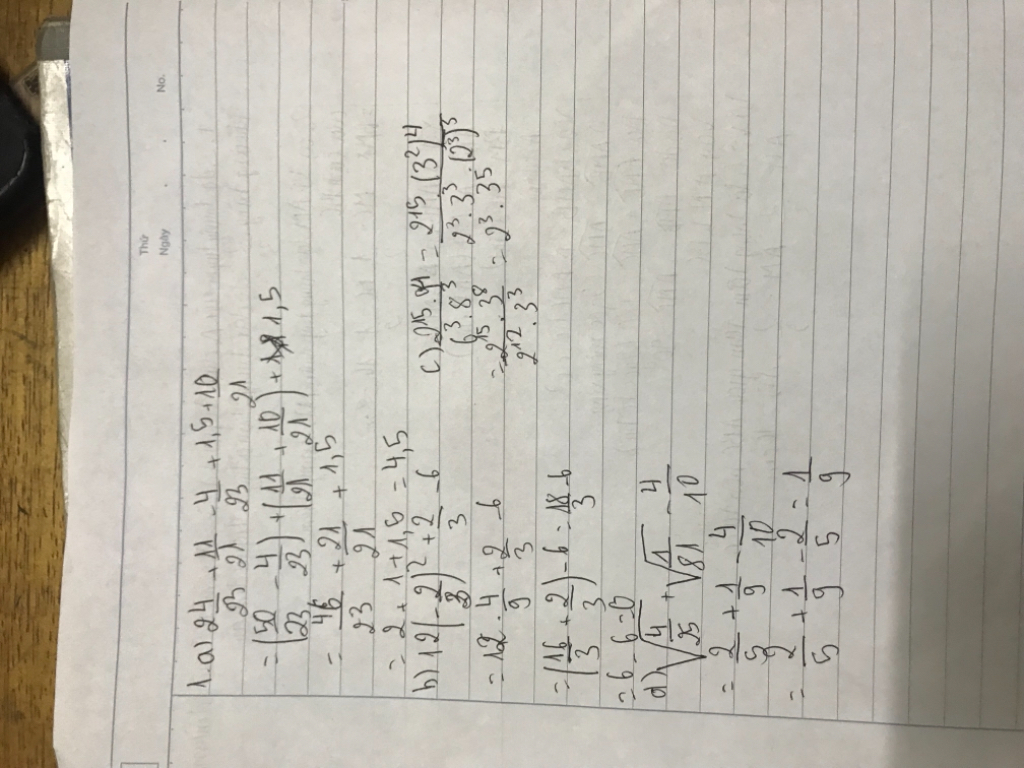 Thứ
Ngày
No.
1.a) 2 4/23 + 11/21 - 4/23 + 1,5 + 10/21
= (50/23 - 4/23) + (11/21 + 10/21) + 1,5
= 46/23 + 21/21 + 1,5
= 2 + 1 + 1,5 = 4,5
b) 12(-2/3)² + 2/3 - 6
= 12 . 4/9 + 2/3 - 6
= (16/3 + 2/3) - 6 = 18/3 - 6
= 6 - 6 = 0
c) 2¹⁵ . 9⁴ / 6³ . 8³ = 2¹⁵ . (3²)⁴ / 2³ . 3³ . (2³)³
= 2¹⁵ . 3⁸ / 2¹² . 3³ = 2³ . 3⁵
d) √4/25 + √1/81 - 4/10
= 2/5 + 1/9 - 4/10
= 2/5 + 1/9 - 2/5 = 1/9